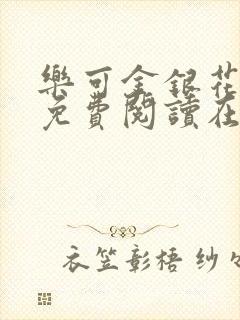 樂可金銀花
免費閱讀在
衣笠彰梧 纱々